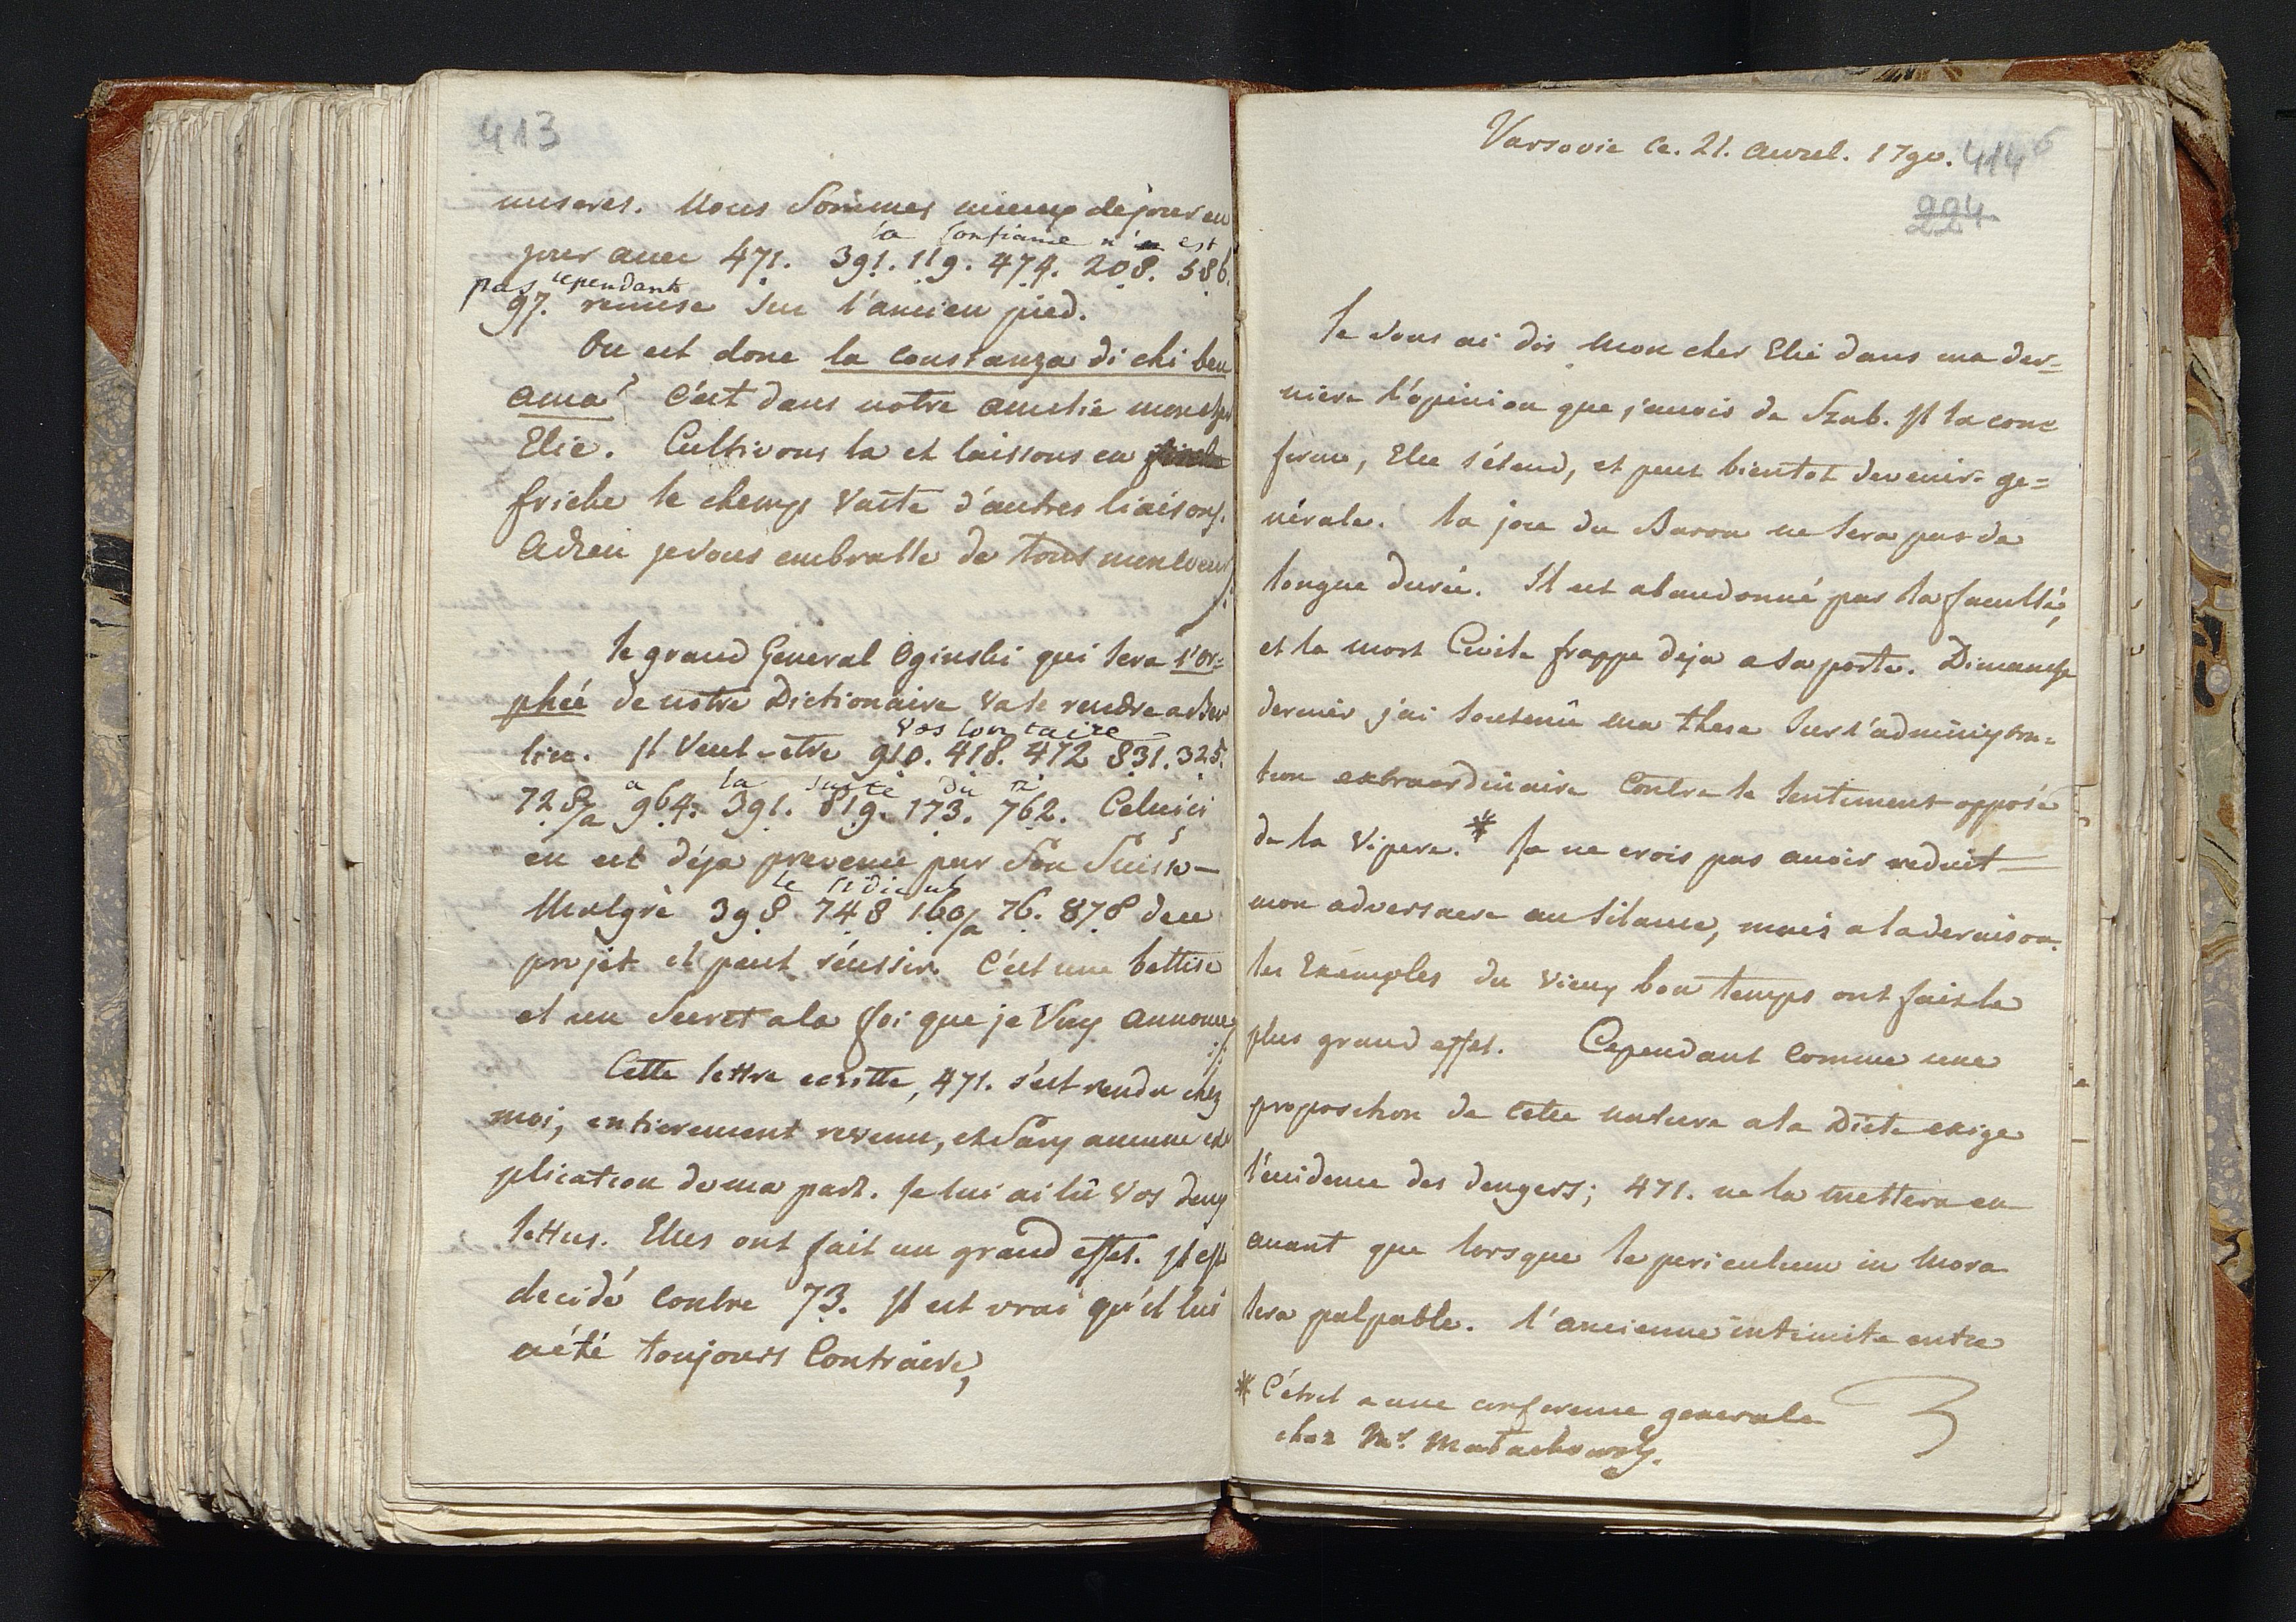 413
miseres. Nous Sommes mieux de jour en
la Confiance n'en est
jour avec 471. 391. 119. 474. 208. 586.
pas cependant
97. remise sur l'ancien pied.
Ou est donc la constanza di chi ben
ama? C'est dans notre amitié mon cher
Elie. Cultivons la et laissons en
friche le champ vaste d'autres liaisons.
Adieu je vous embrasse de tout mon coeur
le grand General Oginski qui sera l'or=
phée de notre Dictionaire va se rendre a Ber
lin. Il veut-etre 910. 418. 472 831. 325.
a la suite du
728/a 964. 391. 819. 173. 762. Celuici
en est déja prevenu par Son Suisse-
le ridicul
Malgrè 398. 748 160/a 76. 878 de ce
projet il peut réussir. C'est une bettise
et un Secret a la foi que je Vous annonce
Cette lettre ecritte, 471. s'est rendu chez
moi, entierement revenu, et Sans aucune ex
plication de ma part. Je lui ai lû vos deux
lettres. Elles ont fait un grand effet. Il est
decidé contre 73. Il est vrai qu'il lui
a été toujours Contraire,
Varsovie ce. 21. avril. 1790. 414
224
Je vous ai dis mon cher Elie dans ma der=
niere l'opinion que j'avois de Szab. Il la con=
firme, Elle s'étend, et peut bientot devenir ge=
nérale. la joie du Baron ne sera pas de
longue durée. Il est abandonné par la faculté,
et la mort Civile frappe deja a sa porte. Dimanche
dernier j'ai soutenû ma these sur l'administra=
tion extraordinaire contre le sentiment opposé
de la Vipere.* Je ne crois pas avoir reduit
mon adversaire au silence, mais a la deraison.
les Exemples du vieux bon temps ont fait le
plus grand effet. Cependant comme une
proposition de cette nature a la Diete exige
l'évidence des dangers; 471. ne la mettera en
avant que lorsque le periculum in mora
sera palpable. l'ancienne intimite entre
* C'étoit a une conference generale
chez Mr. Małachowski.